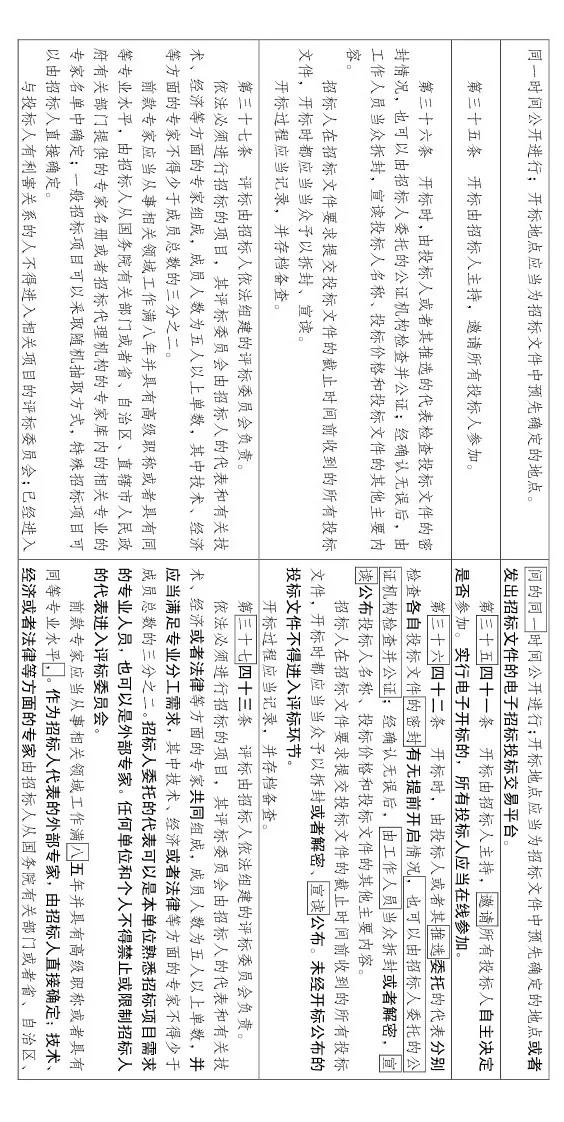 同一时间公开进行；开标地点应当为招标文件中预先确定的地点。
间的同一时间公开进行；开标地点应当为招标文件中预先确定的地点或者
发出招标文件的电子招标投标交易平台。
第三十五条　开标由招标人主持，邀请所有投标人参加。
第三十五四十一条　开标由招标人主持，邀请所有投标人自主决定
是否参加。实行电子开标的，所有投标人应当在线参加。
第三十六条　开标时，由投标人或者其推选的代表检查投标文件的密
封情况，也可以由招标人委托的公证机构检查并公证；经确认无误后，由
工作人员当众拆封，宣读投标人名称、投标价格和投标文件的其他主要内
容。
招标人在招标文件要求提交投标文件的截止时间前收到的所有投标
文件，开标时都应当当众予以拆封、宣读。
开标过程应当记录，并存档备查。
第三十六四十二条　开标时，由投标人或者其推选委托的代表分别
检查各自投标文件的密封有无提前开启情况，也可以由招标人委托的公
证机构检查并公证；经确认无误后，由工作人员当众拆封或者解密，宣
读公布投标人名称、投标价格和投标文件的其他主要内容。
招标人在招标文件要求提交投标文件的截止时间前收到的所有投标
文件，开标时都应当当众予以拆封或者解密、宣读公布。未经开标公布的
投标文件不得进入评标环节。
开标过程应当记录，并存档备查。
第三十七条　评标由招标人依法组建的评标委员会负责。
依法必须进行招标的项目，其评标委员会由招标人的代表和有关技
术、经济等方面的专家组成，成员人数为五人以上单数，其中技术、经济
等方面的专家不得少于成员总数的三分之二。
前款专家应当从事相关领域工作满八年并具有高级职称或者具有同
等专业水平，由招标人从国务院有关部门或者省、自治区、直辖市人民政
府有关部门提供的专家名册或者招标代理机构的专家库内的相关专业的
专家名单中确定；一般招标项目可以采取随机抽取方式，特殊招标项目可
以由招标人直接确定。
与投标人有利害关系的人不得进入相关项目的评标委员会；已经进入
第三十七四十三条　评标由招标人依法组建的评标委员会负责。
依法必须进行招标的项目，其评标委员会由招标人的代表和有关技
术、经济或者法律等方面的专家共同组成，成员人数为五人以上单数，并
应当满足专业分工需求，其中技术、经济或者法律等方面的专家不得少于
成员总数的三分之二。招标人委托的代表可以是本单位熟悉招标项目需求
的专业人员，也可以是外部专家。任何单位和个人不得禁止或限制招标人
的代表进入评标委员会。
前款专家应当从事相关领域工作满八五年并具有高级职称或者具有
同等专业水平，。作为招标人代表的外部专家，由招标人直接确定；技术、
经济或者法律等方面的专家由招标人从国务院有关部门或者省、自治区、